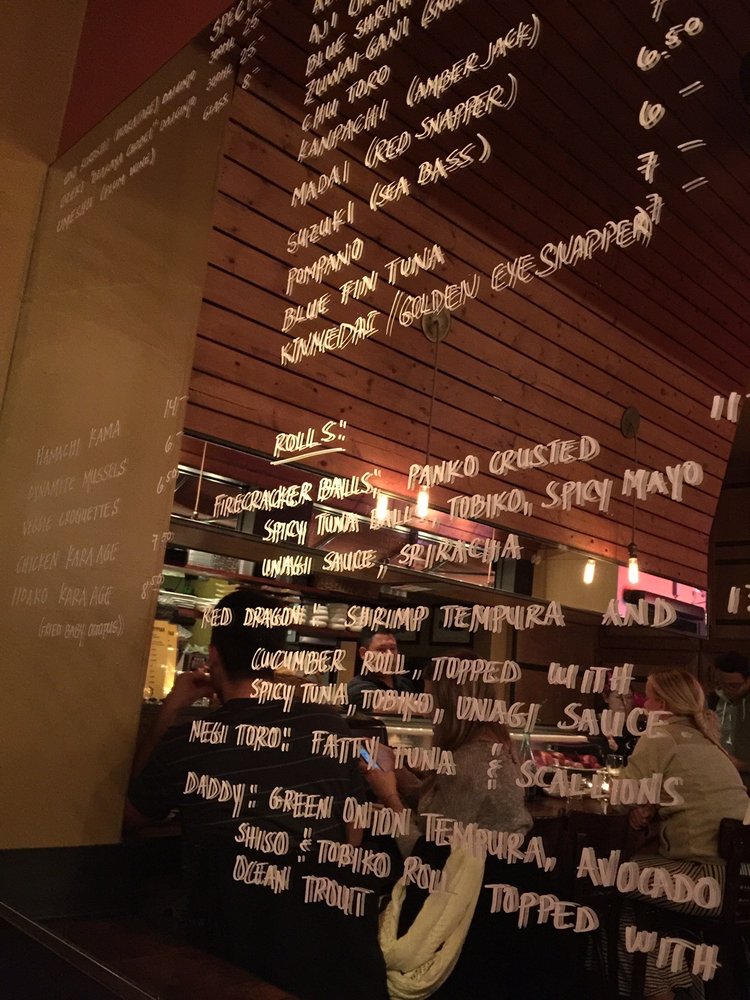 AJI
BLUE SHRIMP
ZUWAI-GANI
CHU TORO
KANPACHI (AMBERJACK)
MADAI (RED SNAPPER)
SUZUKI (SEA BASS)
POMPANO
BLUE FIN TUNA
KINMEDAI /GOLDEN EYE SNAPPER)
7
6.50
6 –
7 –
7 –
300ML 25–
300ML 25–
GLASS 8–
UMESHU (PLUM WINE)
HAMACHI KAMA 14–
DYNAMITE MUSSELS 6–
VEGGIE CROQUETTES 6.50
CHICKEN KARAAGE 7.50
IIDAKO KARAAGE 8.50
(FRIED BABY OCTOPUS)
ROLLS:
FIRECRACKER BALLS: PANKO CRUSTED
SPICY TUNA BALLS, TOBIKO, SPICY MAYO
UNAGI SAUCE, SRIRACHA
RED DRAGON: SHRIMP TEMPURA AND
CUCUMBER ROLL, TOPPED WITH
SPICY TUNA, TOBIKO, UNAGI SAUCE
NEGI TORO: FATTY TUNA & SCALLIONS
DADDY: GREEN ONION TEMPURA, AVOCADO
SHISO & TOBIKO ROLL TOPPED WITH
OCEAN TROUT